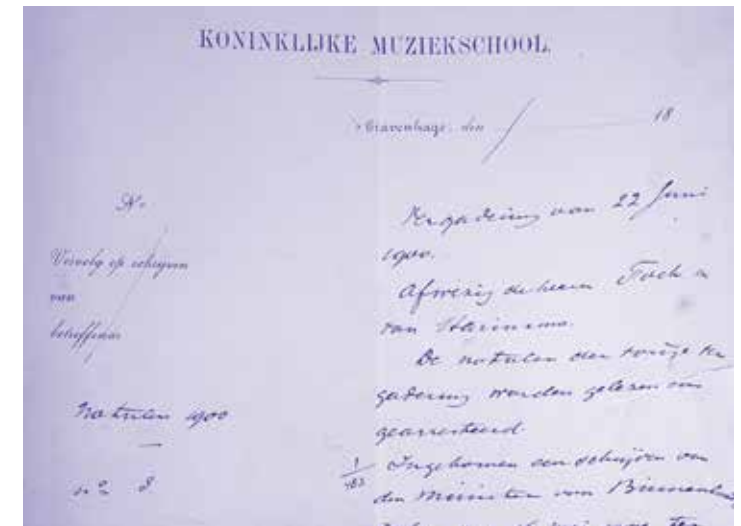 KONINKLIJKE MUZIEKSCHOOL.
's Gravenhage, den 18
No.
Vervolg op schrijven
van
betreffende
Notulen 1900
no 8
Vergadering van 22 Juni
1900.
Afwezig de heeren
van
De notulen der vorige Ver
gadering worden gelezen en
gearresteerd.
1/183 Ingekomen een schrijven van
den Minister van Binnenl